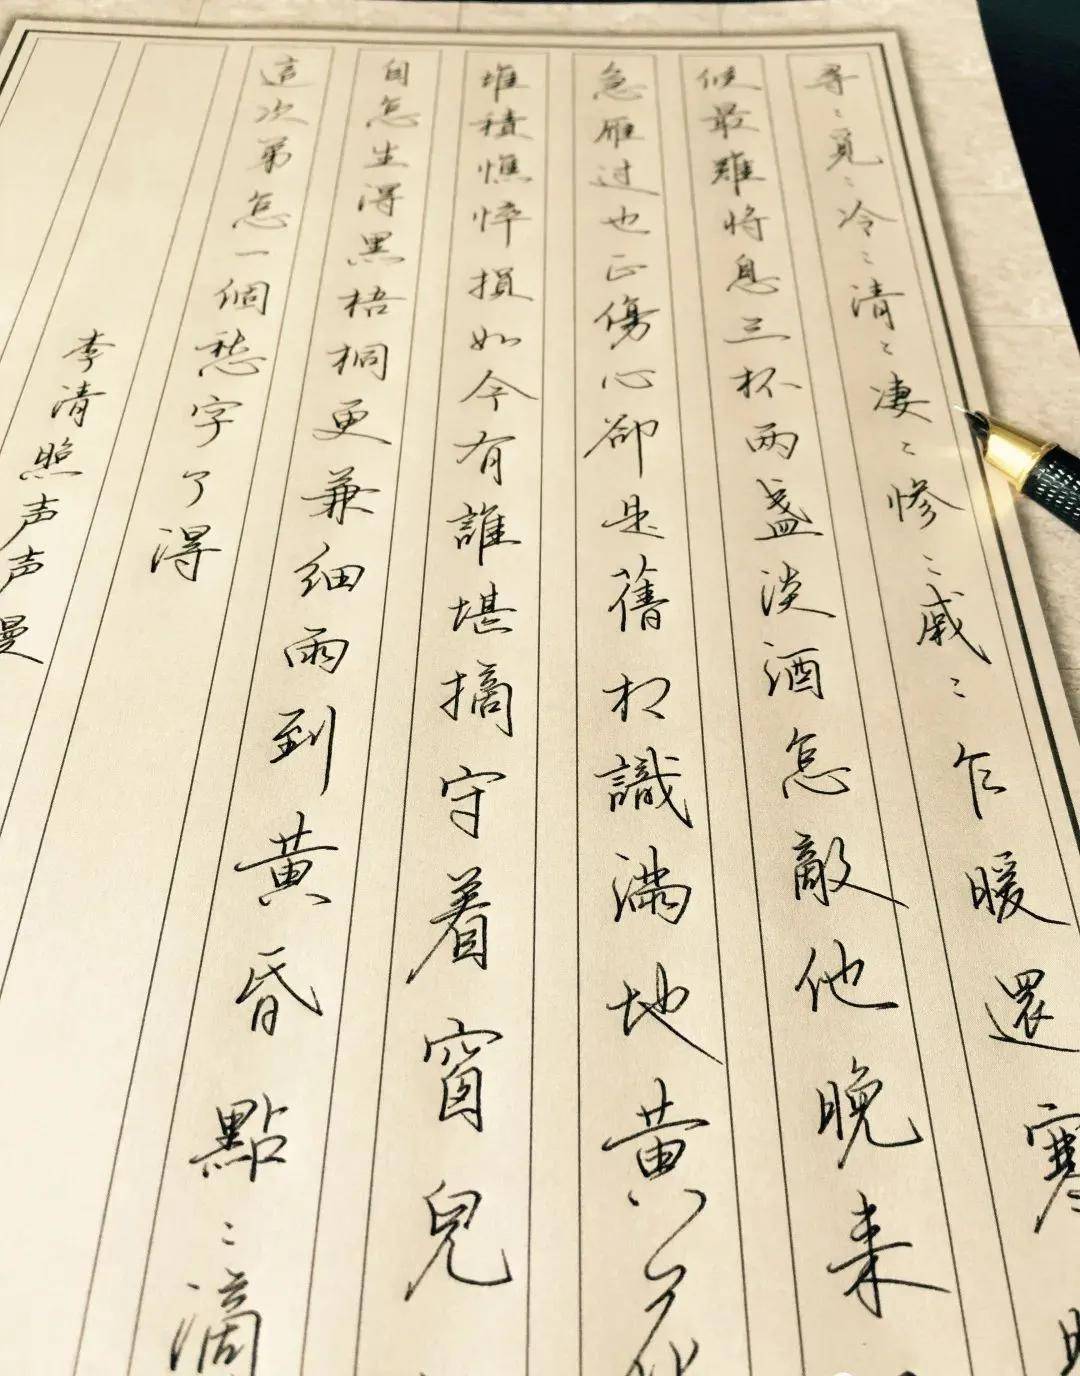 尋：覓：冷：清：凄：惨：戚：乍暖還寒時
候最難將息三杯兩盞淡酒怎敵他晚来
急雁过也正傷心卻是舊相識滿地黄花
堆積憔悴損如今有誰堪摘守着窗兒
自怎生得黑梧桐更兼细雨到黄昏點：滴
這次第怎一個愁字了得
李清照声声慢